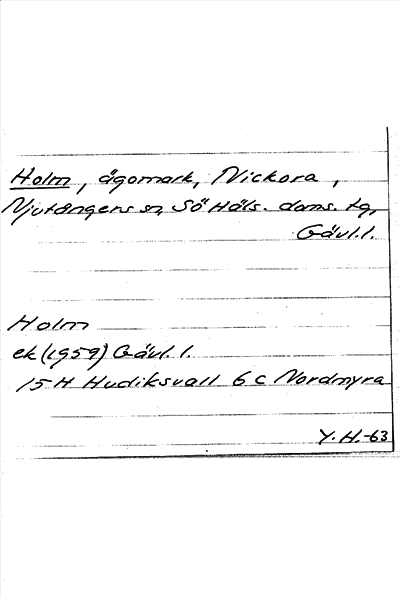 Holm, ägomark, Nickora,
Njutångers sn, Sö Häls. doms. tg,
Gävl. l.
Holm
ek (1959) Gävl. l.
15 H Hudiksvall 6 c Nordmyra
Y. H.-63